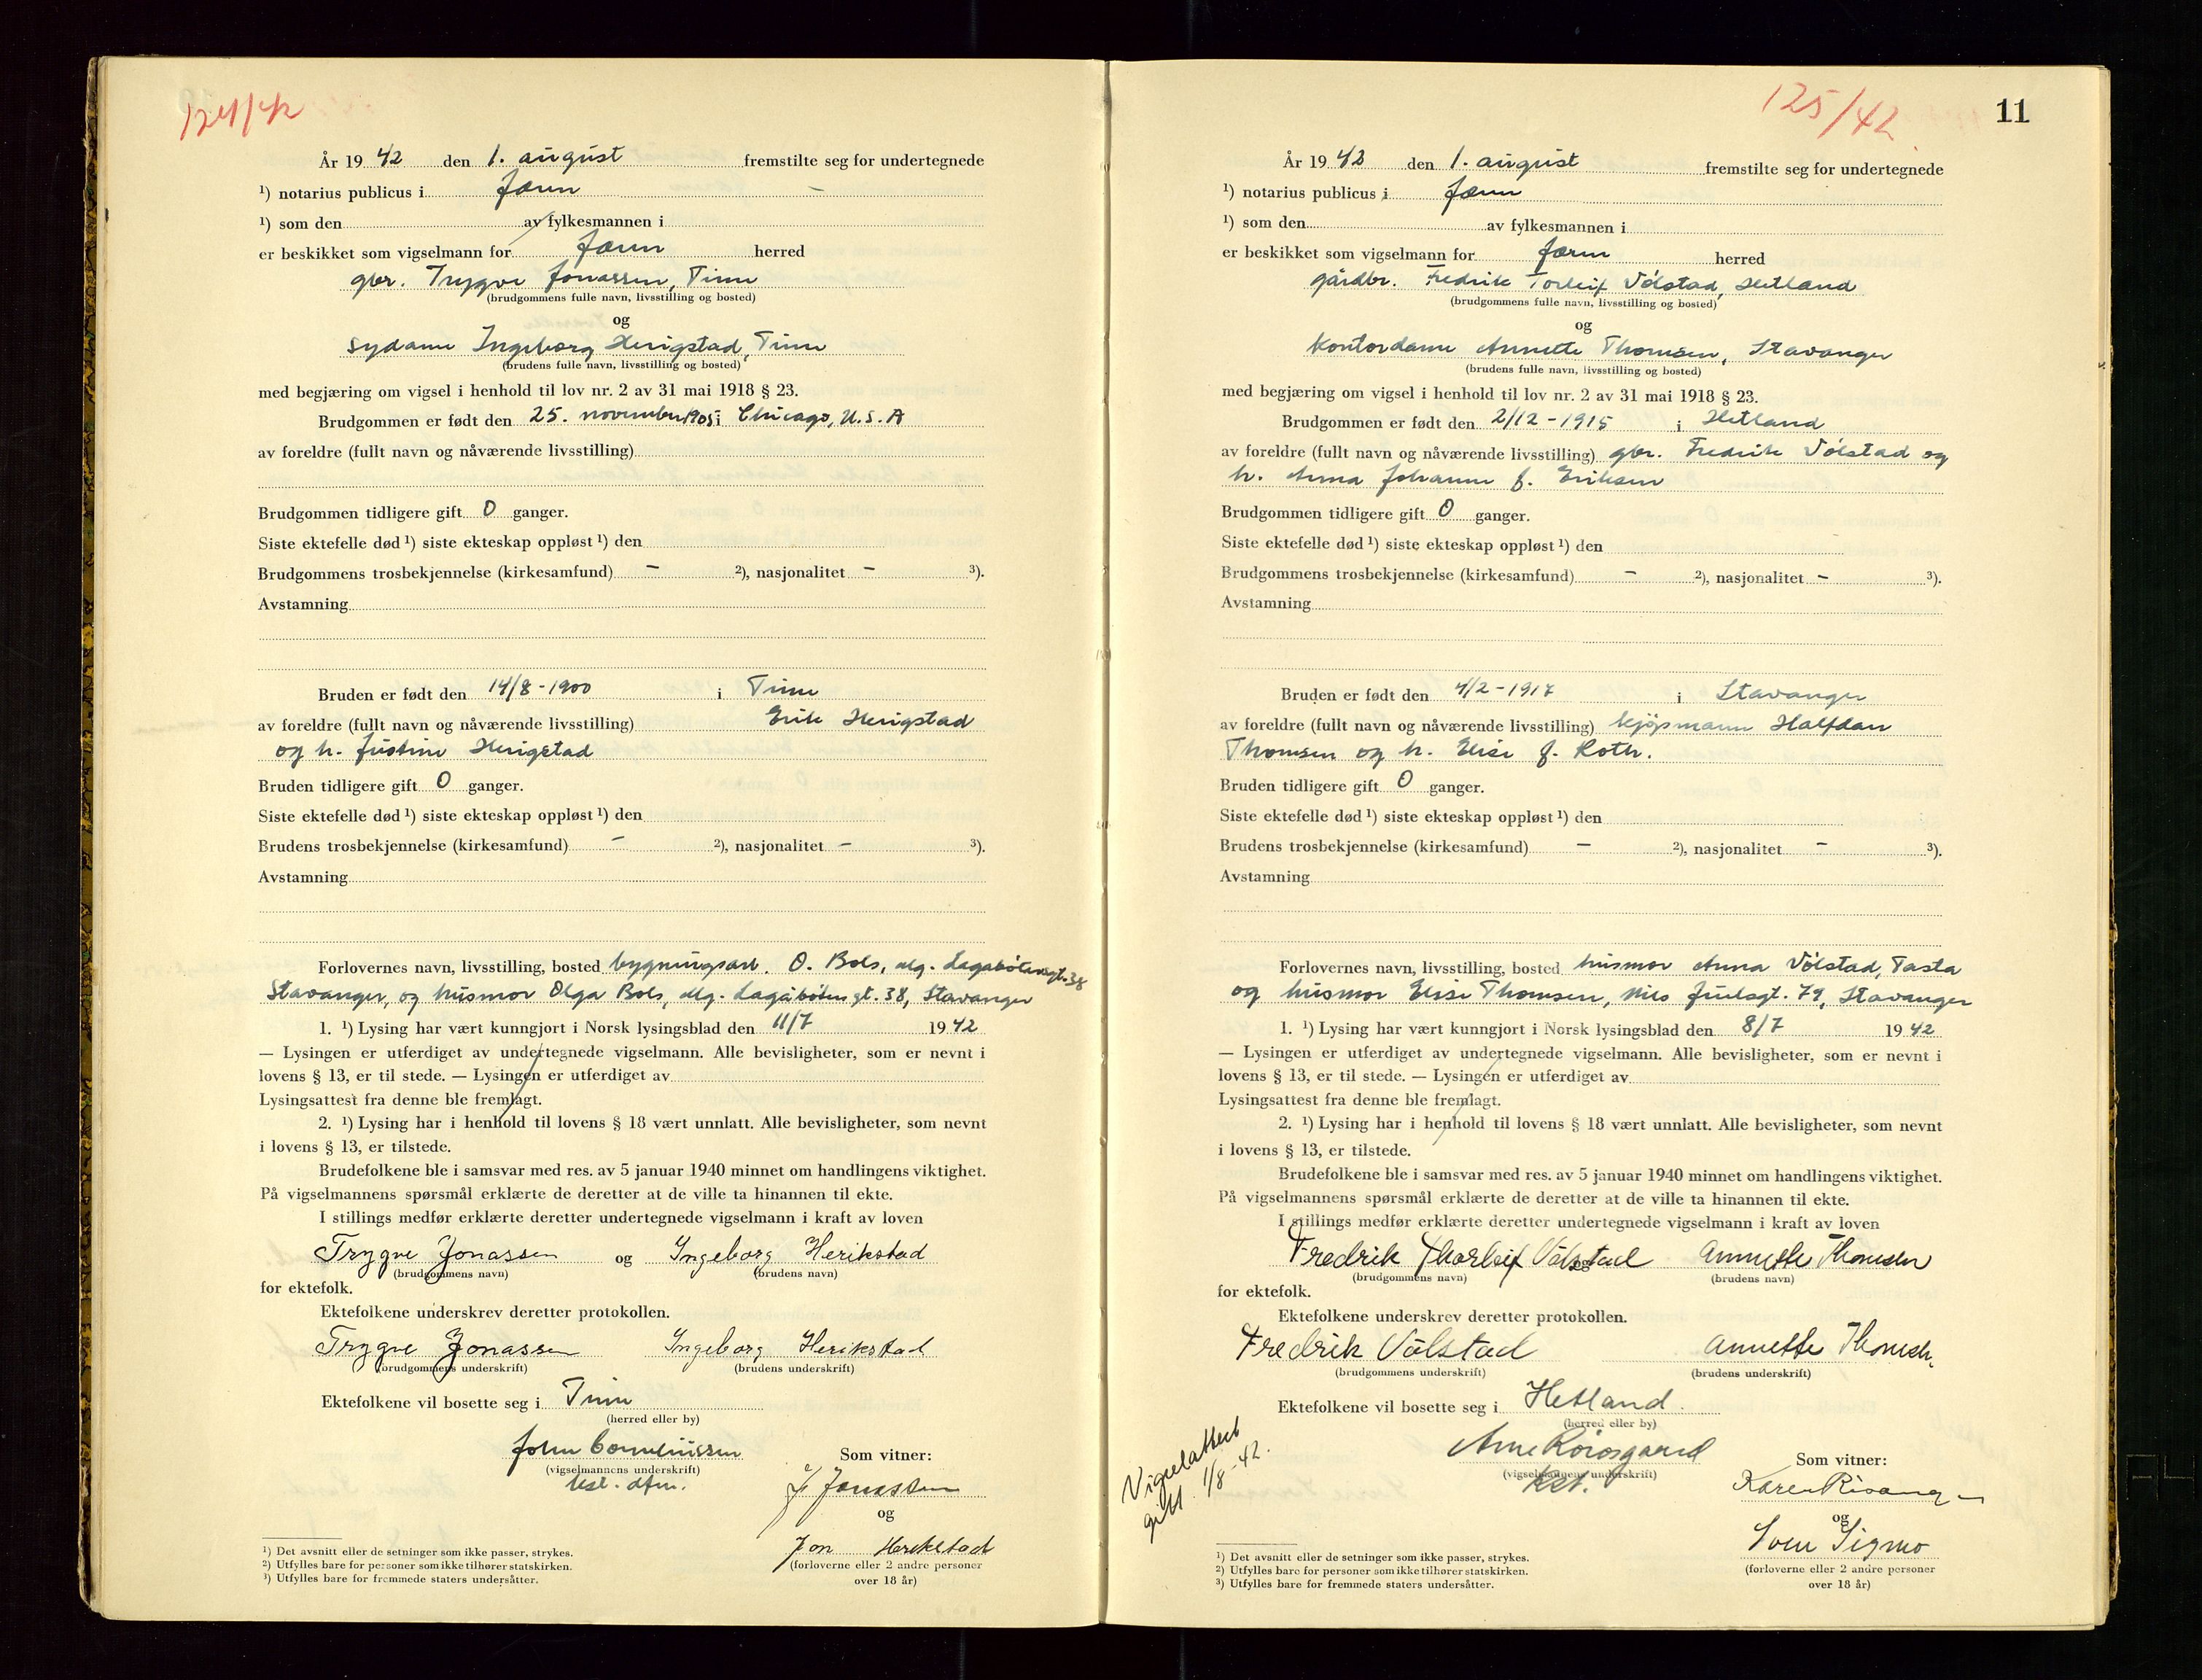 124/42
År 19 42 den 1. august fremstilte seg for undertegnede
¹) notarius publicus i Jæren
¹) som den av fylkesmannen i
er beskikket som vigselmann for Jæren herred
gbr. Trygve Jonassen, Time
(brudgommens fulle navn, livsstilling og bosted)
og
sydame Ingeborg Herigstad, Time
(brudens fulle navn, livsstilling og bosted)
med begjæring om vigsel i henhold til lov nr. 2 av 31 mai 1918 § 23.
Brudgommen er født den 25. november 1905 i Chicago, U.S.A
av foreldre (fullt navn og nåværende livsstilling)
Brudgommen tidligere gift 0 ganger.
Siste ektefelle død ¹) siste ekteskap oppløst ¹) den
Brudgommens trosbekjennelse (kirkesamfund) – ²), nasjonalitet – ³).
Avstamning
Bruden er født den 14/8-1900 i Time
av foreldre (fullt navn og nåværende livsstilling) Erik Herigstad
og h. Justine Herigstad
Bruden tidligere gift 0 ganger.
Siste ektefelle død ¹) siste ekteskap oppløst ¹) den
Brudens trosbekjennelse (kirkesamfund) – ²), nasjonalitet – ³).
Avstamning
Forlovernes navn, livsstilling, bosted bygningsarb. O. Bols, Mg. Lagabøtersgt. 38
Stavanger, og husmor Olga Bols, Mg. Lagabøters gt. 38, Stavanger
1. ¹) Lysing har vært kunngjort i Norsk lysingsblad den 11/7 19 42
— Lysingen er utferdiget av undertegnede vigselmann. Alle bevisligheter, som er nevnt i
lovens § 13, er til stede. — Lysingen er utferdiget av
Lysingsattest fra denne ble fremlagt.
2. ¹) Lysing har i henhold til lovens § 18 vært unnlatt. Alle bevisligheter, som nevnt
i lovens § 13, er tilstede.
Brudefolkene ble i samsvar med res. av 5 januar 1940 minnet om handlingens viktighet.
På vigselmannens spørsmål erklærte de deretter at de ville ta hinannen til ekte.
I stillings medfør erklærte deretter undertegnede vigselmann i kraft av loven
Trygve Jonassen og Ingeborg Herikstad
(brudgommens navn) (brudens navn)
for ektefolk.
Ektefolkene underskrev deretter protokollen.
Trygve Jonassen Ingeborg Herikstad
(brudgommens underskrift) (brudens underskrift)
Ektefolkene vil bosette seg i Time
(herred eller by)
John Corneliussen
(vigselmannens underskrift)
Som vitner:
J Jonassen
og
Jon Herikstad
(forloverne eller 2 andre personer
over 18 år)
¹) Det avsnitt eller de setninger som ikke passer, strykes.
²) Utfylles bare for personer som ikke tilhører statskirken.
³) Utfylles bare for fremmede staters undersåtter.
125/42
11
År 19 42 den 1. august fremstilte seg for undertegnede
¹) notarius publicus i Jæren
¹) som den av fylkesmannen i
er beskikket som vigselmann for Jæren herred
gårdbr. Fredrik Torleif Vølstad, Hetland
(brudgommens fulle navn, livsstilling og bosted)
og
Kontordame Annette Thomsen, Stavanger
(brudens fulle navn, livsstilling og bosted)
med begjæring om vigsel i henhold til lov nr. 2 av 31 mai 1918 § 23.
Brudgommen er født den 2/12-1915 i Hetland
av foreldre (fullt navn og nåværende livsstilling) gbr. Fredrik Vølstad og
h. Anna Johanne f. Eriksen
Brudgommen tidligere gift 0 ganger.
Siste ektefelle død ¹) siste ekteskap oppløst ¹) den
Brudgommens trosbekjennelse (kirkesamfund) – ²), nasjonalitet – ³).
Avstamning
Bruden er født den 4/2-1917 i Stavanger
av foreldre (fullt navn og nåværende livsstilling) kjøpmann Halfdan
Thomsen og h. Elise f. Roth.
Bruden tidligere gift 0 ganger.
Siste ektefelle død ¹) siste ekteskap oppløst ¹) den
Brudens trosbekjennelse (kirkesamfund) – ²), nasjonalitet – ³).
Avstamning
Forlovernes navn, livsstilling, bosted husmor Anna Vølstad, Tasta
og husmor Elise Thomsen, Nils Juelsgt. 79, Stavanger
1. ¹) Lysing har vært kunngjort i Norsk lysingsblad den 8/7 19 42
— Lysingen er utferdiget av undertegnede vigselmann. Alle bevisligheter, som er nevnt i
lovens § 13, er til stede. — Lysingen er utferdiget av
Lysingsattest fra denne ble fremlagt.
2. ¹) Lysing har i henhold til lovens § 18 vært unnlatt. Alle bevisligheter, som nevnt
i lovens § 13, er tilstede.
Brudefolkene ble i samsvar med res. av 5 januar 1940 minnet om handlingens viktighet.
På vigselmannens spørsmål erklærte de deretter at de ville ta hinannen til ekte.
I stillings medfør erklærte deretter undertegnede vigselmann i kraft av loven
Fredrik Thorleif Vølstad og Annette Thomsen
(brudgommens navn) (brudens navn)
for ektefolk.
Ektefolkene underskrev deretter protokollen.
Fredrik Vølstad Annette Thomsen
(brudgommens underskrift) (brudens underskrift)
Ektefolkene vil bosette seg i Hetland.
(herred eller by)
Vigselattest
gitt 1/8-42.
Arne
(vigselmannens underskrift)
kst.
Som vitner:
Karen
og
Sven Sigmo
(forloverne eller 2 andre personer
over 18 år)
¹) Det avsnitt eller de setninger som ikke passer, strykes.
²) Utfylles bare for personer som ikke tilhører statskirken.
³) Utfylles bare for fremmede staters undersåtter.